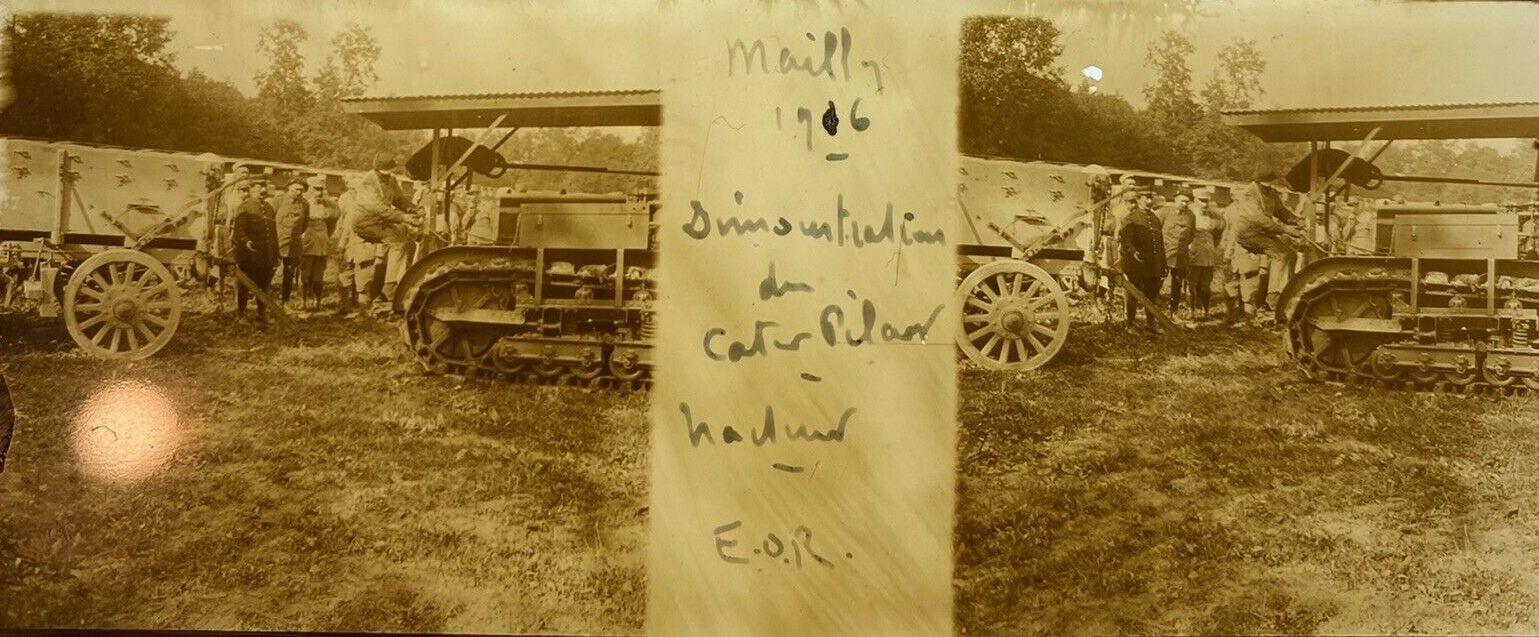 Mailly
1916
Démonstration
du
Cater Pilar
tracteur
E.O.R.